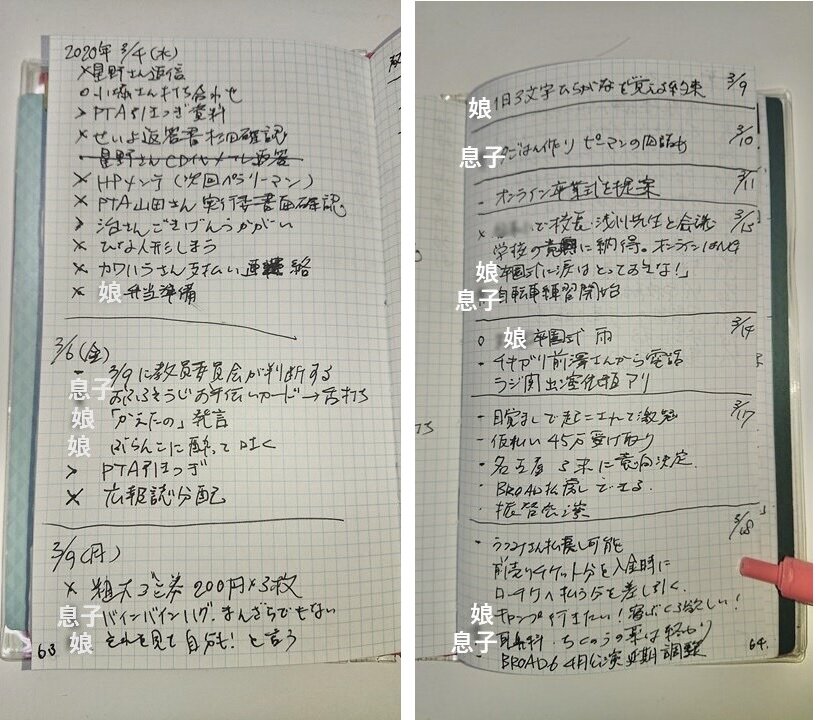 2020年 3/4(水)
×星野さん返信
○小塚さん打ち合わせ
> PTA引きつぎ資料
×せいよ返答書 確認
星野さん メール返答
×HPメンテ(次回ペラリーマン)
×PTA山田さん 実行委書面確認
> 治さんごきげんうかがい
×ひな人形しまう
×カワハラさん支払い連絡
×娘 弁当準備
3/6(金)
- 3/9に教育委員会が判断する
息子 おふろそうじお手伝いカード→舌打ち
娘 「かえたの」発言
娘 ぶらんこに酔って吐く
> PTA引きつぎ
×広報誌分配
3/9(月)
×粗大ゴミ券 200円×3枚
息子 バインバインハグ。まんざらでもない
娘 それを見て自分も!と言う
63
娘 1日3文字ひらがなを覚える約束 3/9
息子 ごはん作り ピーマンの肉詰め 3/10
- オンライン卒業式を提案 3/11
× で校長、浅川先生と会議
学校の意見に納得。オンライン
娘 卒園式に涙はとっておきな!」
息子 自転車練習開始
○娘 卒園式 雨 3/14
- 前澤さんから電話
ラジ関出演依頼アリ
- 目覚ましで起こされて激怒 3/17
- 仮払い45万受け取り
- 名古屋 末に意向決定.
- BROAD払戻しできる.
- 振替公演
- 払戻し可能 3/18
前売りチケット分を入金時に
ローチケへ払う分を差し引く.
娘 キャンプ行きたい!寝ぶくろ欲しい!
息子 耳鼻科.ちくのうの薬は終わり
- BROAD6 4月公演延期調整
64